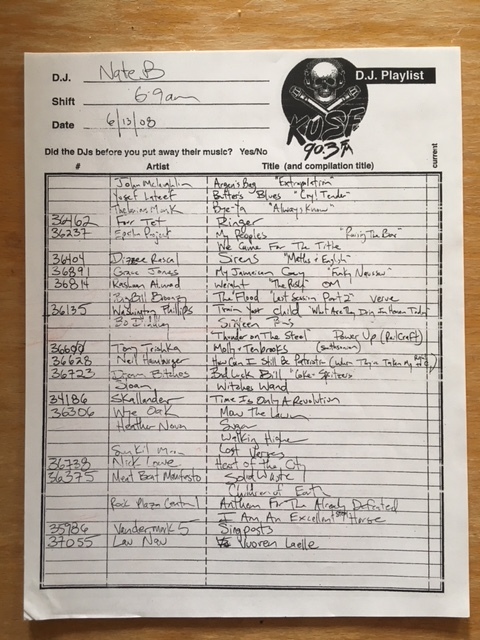 D.J. Nate B
Shift 6-9am
Date 6/13/08
KUSF
90.3 FM
D.J. Playlist
Did the DJs before you put away their music? Yes/No
current
# Artist Title (and compilation title)
John McLaughlin Argen's Bag "Extrapolation"
Yusef Lateef Butter's Blues "Cry! Tender"
Thelonius Monk Bye-Ya "Always Know"
36462 Four Tet Ringer
36237 My Peoples
We Came For The Title
36404 Dizzee Rascal Sirens "Maths & English"
36891 Grace Jones My Jamaican Guy
36814 Kashmere Weight "The Rise" OM
Big Bill Broonzy The Flood "Last Session Part 2" Verve
36135 Washington Phillips Train Your Child "What Are They Doing In Heaven Today"
Bo Diddley Sixteen
"Thunder on The Steel" Power Up (RailCraft)
Tony Trishka Molly + Tenbrooks (Smithsonian)
36628 Neil Hamburger How Can I Still Be Patriotic (When They've Taken My
36723 Drunk Bitches Bad Luck Bill
Sloan Witches Wand
34186 Skallander Time Is Only A Revolution
36306 Wye Oak Mow The Lawn
Heather Sugar
Walking Higher
Sun Kil Moon Lost Verses
36738 Nick Lowe Heart of the City
36375 Meat Beat Manifesto Solid Waste
Children of Earth
Rock Plaza Central Anthem For The Already Defeated
I Am An Excellent Steel Horse
35986 Vandermark 5 Signposts
37055 Lau Nau Vuoren Laelle